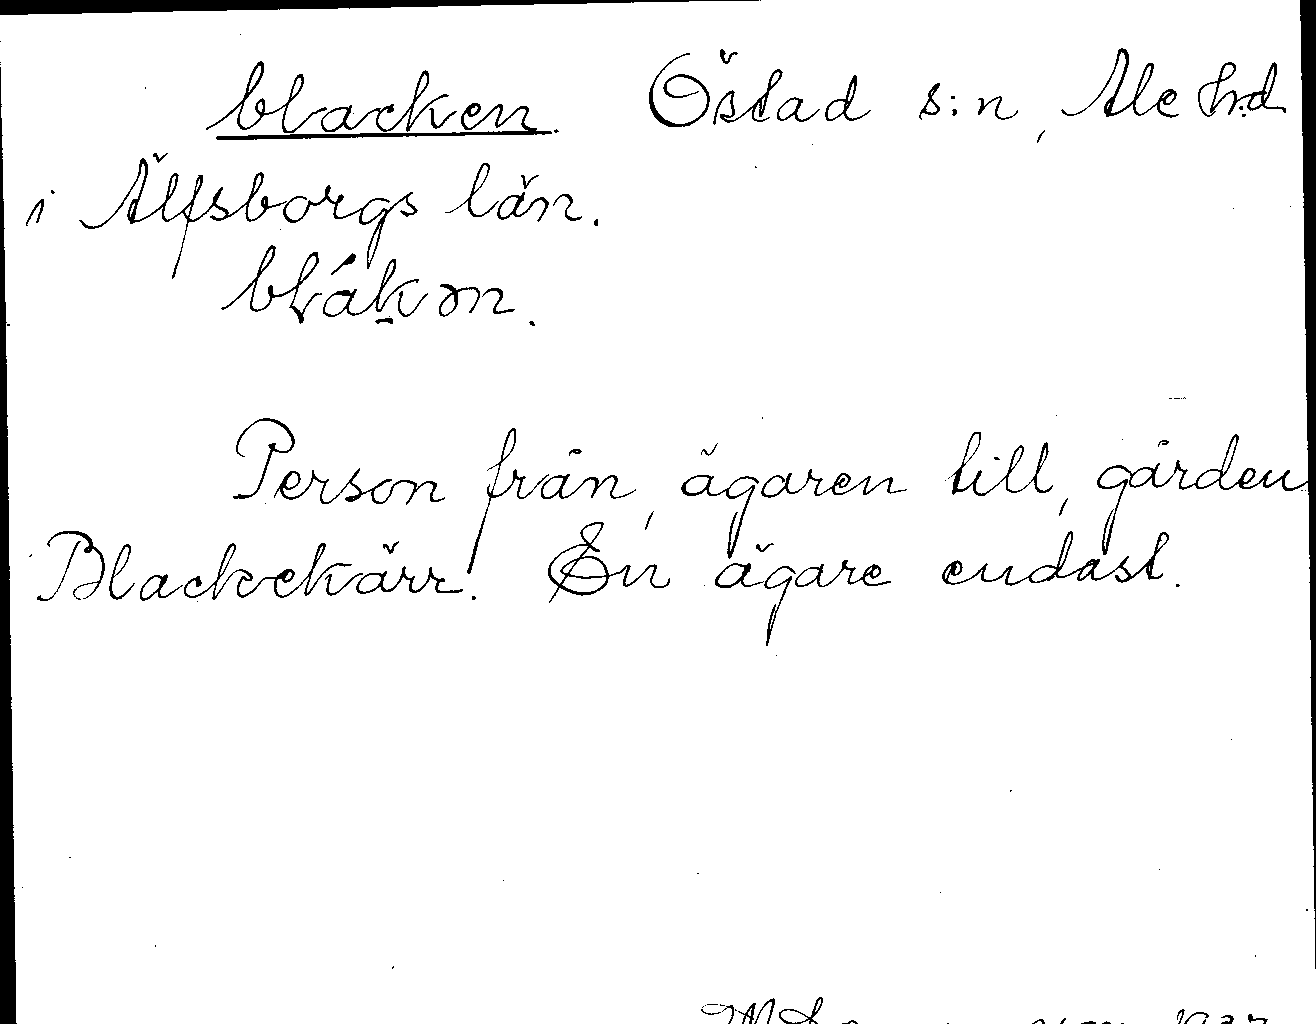 blacken. Östad s:n, Ale hd
i Älfsborgs län.
blákən.
Person från, ägaren till, gården
Blackekärr. En ägare endast.
1937